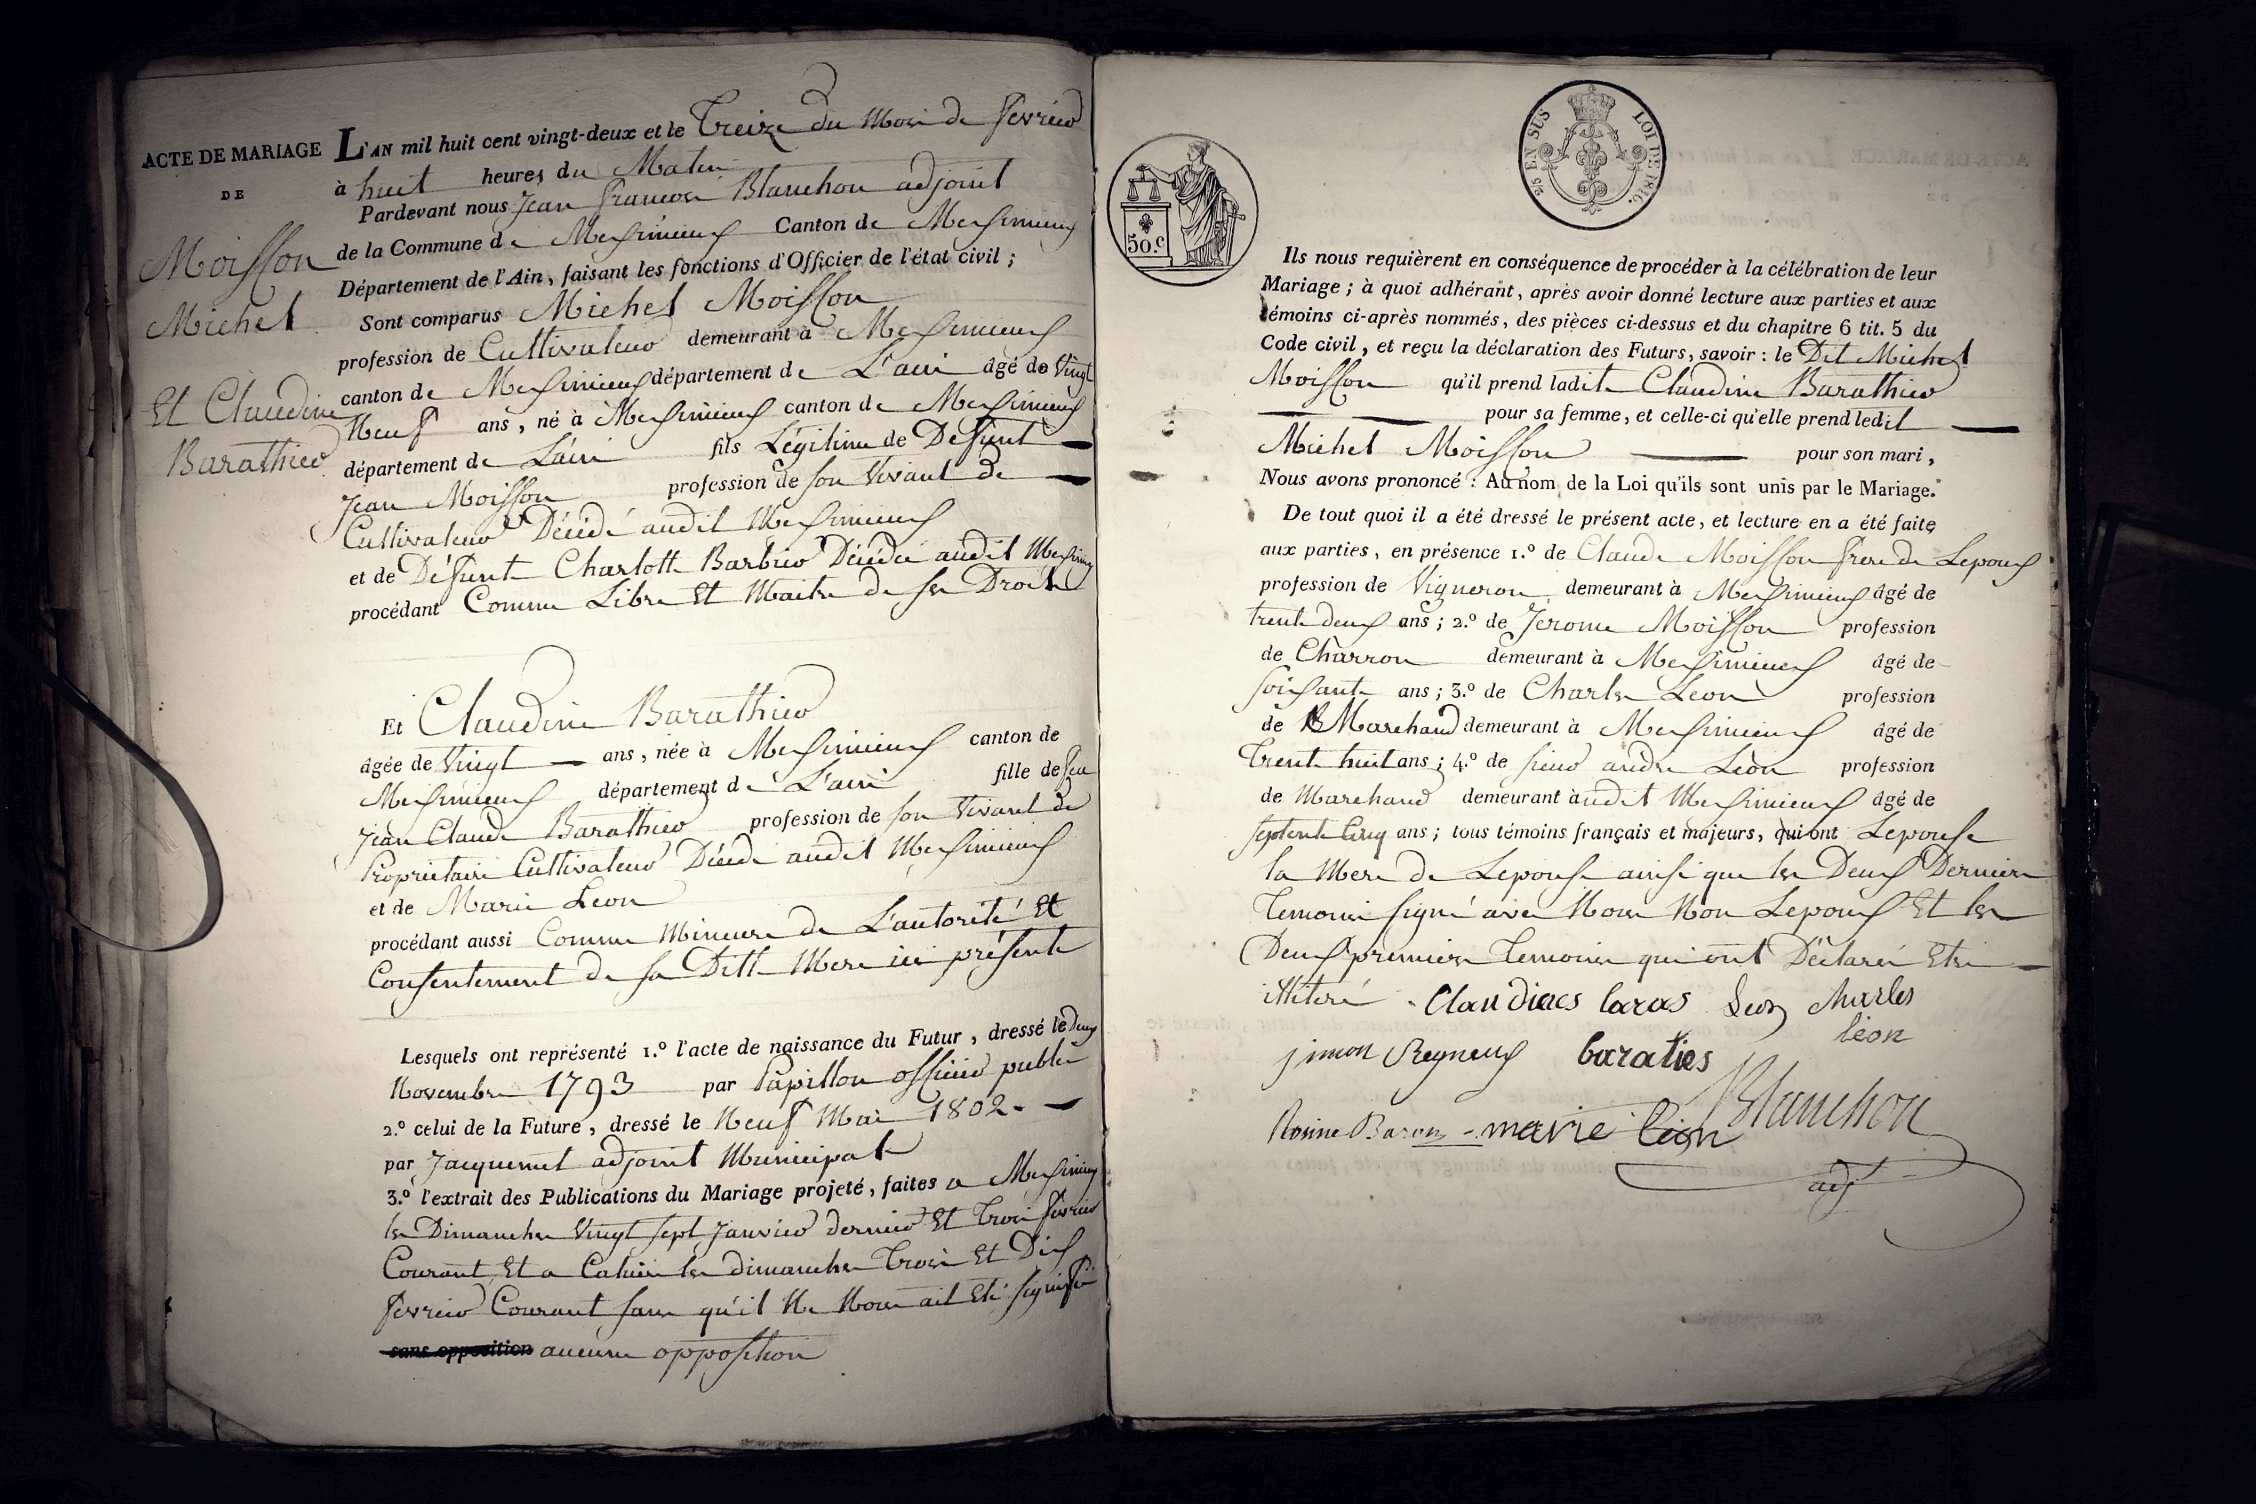 ACTE DE MARIAGE
DE
Moisson
Michel
Et Claudine
Barathier
L'AN mil huit cent vingt-deux et le Treize du Mois de fevrier
à huit heures du Matin
Pardevant nous Jean francois Blanchon adjoint
de la Commune de Meximieux Canton de Meximieux
Département de l'Ain, faisant les fonctions d'Officier de l'état civil ;
Sont comparus Michel Moisson
profession de Cultivateur demeurant à Meximieux
canton de Meximieux département de L'ain âgé de Vingt
Neuf ans, né à Meximieux canton de Meximieux
département de L'ain fils Légitime de Defunt
Jean Moisson profession de son Vivant de
Cultivateur Décédé audit Meximieux
et de Défunte Charlotte Barbier Décédée audit Meximieux
procédant Comme Libre Et Maitre de ses Droits
Et Claudine Barathier
âgée de Vingt ans, née à Meximieux canton de
Meximieux département de L'ain fille de feu
Jean Claude Barathier profession de son Vivant de
Propriétaire Cultivateur Décédé audit Meximieux
et de Marie Leon
procédant aussi Comme Mineure de L'autorité Et
Consentement de sa Ditte Mere ici présente
Lesquels ont représenté 1.º l'acte de naissance du Futur, dressé le deux
Novembre 1793 par Papillon officier public
2.º celui de la Future, dressé le Neuf Mai 1802.
par Jacquemet adjoint Municipal
3.º l'extrait des Publications du Mariage projeté, faites a Meximieux
les Dimanches Vingt sept Janvier dernier Et Trois fevrier
Courant Et a les dimanches Trois Et Dix
fevrier Courant sans qu'il Ne Nous ait Eté signifié
sans opposition aucune opposition
50.c
25 EN SUS LOI DE 1816.
Ils nous requièrent en conséquence de procéder à la célébration de leur
Mariage ; à quoi adhérant, après avoir donné lecture aux parties et aux
témoins ci-après nommés, des pièces ci-dessus et du chapitre 6 tit. 5 du
Code civil, et reçu la déclaration des Futurs, savoir : le Dit Michel
Moisson qu'il prend ladite Claudine Barathier
pour sa femme, et celle-ci qu'elle prend ledit
Michel Moisson pour son mari,
Nous avons prononcé : Au nom de la Loi qu'ils sont unis par le Mariage.
De tout quoi il a été dressé le présent acte, et lecture en a été faite
aux parties, en présence 1.º de Claude Moisson frere de Lepoux
profession de Vigneron demeurant à Meximieux âgé de
trente deux ans ; 2.º de Jerome Moisson profession
de Charron demeurant à Meximieux âgé de
soixante ans ; 3.º de Charles Leon profession
de Marchand demeurant à Meximieux âgé de
Trente huit ans ; 4.º de sieur andre Léon profession
de Marchand demeurant audit Meximieux âgé de
septente Cinq ans ; tous témoins français et majeurs, qui ont Lepouse
la Mere de Lepouse ainsi que les Deux Derniers
Temoins signé avec Nous Non Lepoux Et les
Deux premiers Temoins qui ont Déclaré Etre
illiteré. Claudines baras Leon Charles
léon
Simon Reyneux baraties
Blanchon
Rosine Baron marie léon
adj